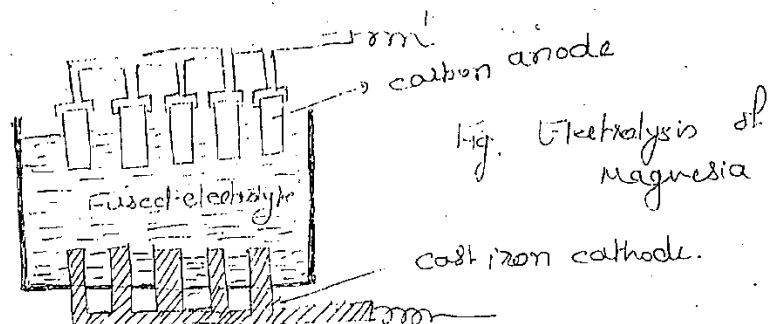 carbon anode
Fig. Electrolysis of
Magnesia
Fused-electrolyte
cast iron cathode.